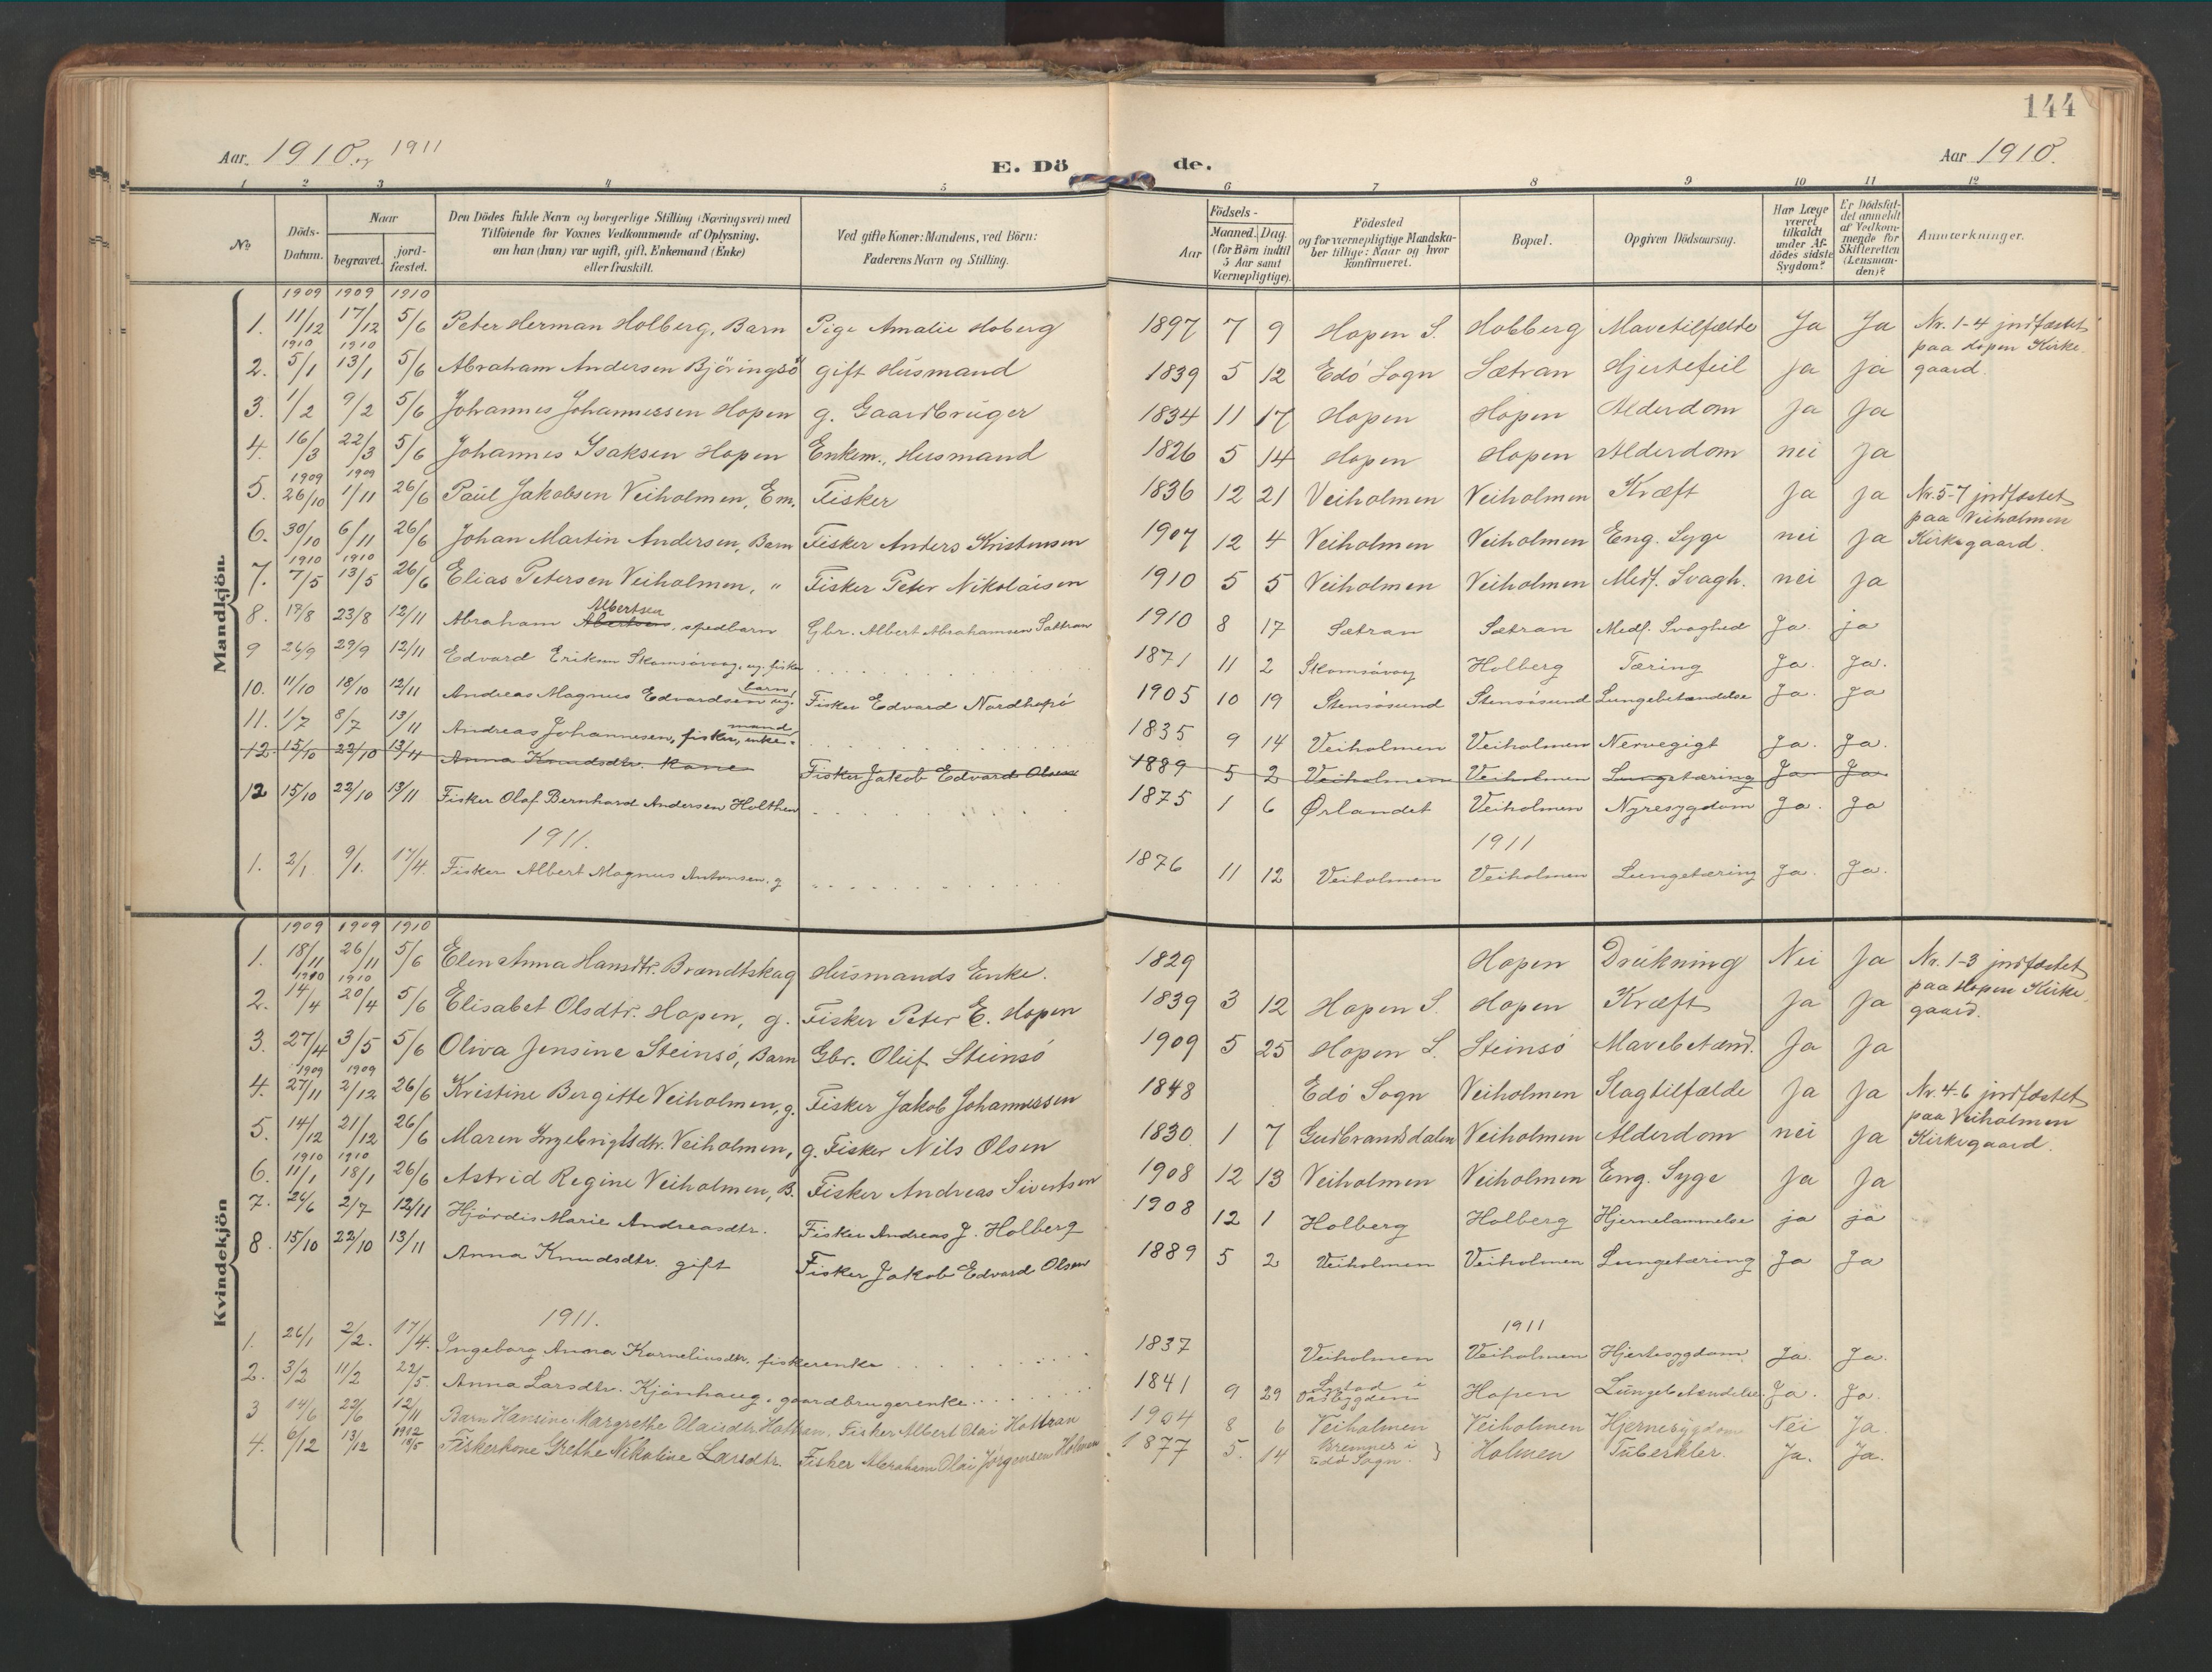 144
Aar. 1910 og 1911
E. Dö de.
Aar 1910.
1 2 3 4 5 6 7 8 9 10 11 12
No
Döds-Datum.
Naar
begravet.
jord-fæstet.
Den Dödes fulde Navn og borgerlige Stilling (Næringsvei) med
Tilföiende for Voxnes Vedkommende af Oplysning,
om han (hun) var ugift, gift, Enkemand (Enke)
eller fraskilt.
Ved gifte Koner: Mandens, ved Börn:
Faderens Navn og Stilling.
Födsels-
Aar
Maaned. Dag.
(for Börn indtil
5 Aar samt
Værnepligtige).
Födested
og for værnepligtige Mandska-
ber tillige: Naar og hvor
konfirmeret.
Bopæl.
Opgiven Dödsaarsag.
Har Læge
været
tilkaldt
under Af-
dödes sidste
Sygdom?
Er Dödsfal-
det anmeldt
af Vedkom-
mende for
Skifteretten
(Lensman-
den)?
Anmærkninger.
Mandkjön.
1909 1909 1910
1. 11/12 17/12 5/6 Peter Herman Holberg, Barn Pige Amalie Hoberg 1897 7 9 Hopen S. Hobberg Mavetilfælde Ja Ja Nr. 1-4 jordfæstet
1910 1910 paa Hopen Kirke-
2. 5/1 13/1 5/6 Abraham Andersen Björingsö gift Husmand 1839 5 12 Edö Sogn Sætran Hjertefeil ja ja gaard.
3. 1/2 9/2 5/6 Johannes Johannessen Hopen g. Gaardbruger 1834 11 17 Hopen Hopen Alderdom ja ja
4. 16/3 22/3 5/6 Johannes Isaksen Hopen Enkem., Husmand 1826 5 14 Hopen Hopen Alderdom nei ja
1909 1909
5. 26/10 1/11 26/6 Paul Jakobsen Veiholmen, Em. Fisker 1836 12 21 Veiholmen Veiholmen Kræft ja ja Nr. 5-7 jordfæstet
paa Veiholmen
6. 30/10 6/11 26/6 Johan Martin Andersen, Barn Fisker Anders Kristensen 1907 12 4 Veiholmen Veiholmen Eng. Syge nei ja Kirkegaard.
1910 1910
7. 7/5 13/5 26/6 Elias Petersen Veiholmen, " Fisker Peter Nikolaisen 1910 5 5 Veiholmen Veiholmen Medf. Svagh. nei ja
Albertsen
8. 17/8 23/8 12/11 Abraham Albertsen, spedbarn Gbr. Albert Abrahamsen Sætran 1910 8 17 Sætran Sætran Medf. Svaghed Ja. ja
9 26/9 29/9 12/11 Edvard Eriksen Skomsövaag, ug. fisker 1871 11 2 Skomsövaag Holberg Tæring Ja. Ja.
barn,
10. 11/10 18/10 12/11 Andreas Magnus Edvardsen ug. Fisker Edvard Nordhopö 1905 10 19 Stensösund Stensösund Lungebetændelse Ja. Ja
mand,
11. 1/7 8/7 13/11 Andreas Johannesen, fisker, enke- 1835 9 14 Veiholmen Veiholmen Nervegigt Ja. Ja.
12. 15/10 22/10 13/11 Anna Knudsdtr. kone Fisker Jakob Edvard Olsen 1889 5 2 Veiholmen Veiholmen Lungetæring Ja Ja
12 15/10 22/10 13/11 Fisker Olaf Bernhard Andersen Holthen 1875 1 6 Ørlandet Veiholmen Nyresygdom Ja. Ja
1911. 1911
1. 2/1 9/1. 17/4. Fisker Albert Magnus Antonsen. g 1876 11 12 Veiholmen Veiholmen Lungetæring Ja. Ja.
Kvindekjön
1909 1909 1910
1. 18/11 26/11 5/6 Elen Anna Hansdtr. Brandtskag Husmands Enke. 1829 Hopen Drukning Nei Ja Nr. 1-3 jordfæstet
1910 1910 paa Hopen Kirke-
2. 14/4 20/4 5/6 Elisabet Olsdtr. Hopen, g. Fisker Peter E. Hopen 1839 3 12 Hopen S. Hopen Kræft ja ja gaard.
3. 27/4 3/5 5/6 Oliva Jensine Steinsö, Barn Gbr. Oluf Steinsö 1909 5 25 Hopen S. Steinsö Mavebetænd. Ja Ja
1909 1909
4. 27/11 2/12 26/6 Kristine Bergitte Veiholmen, g. Fisker Jakob Johannessen 1848 Edö Sogn Veiholmen Slagtilfælde ja ja Nr. 4-6 jordfæstet
paa Veiholmen
5. 14/12 21/12 26/6 Maren Ingebrigtsdtr. Veiholmen, g. Fisker Nils Olsen 1830 1 7 Gudbrandsdalen Veiholmen Alderdom nei ja Kirkegaard.
1910 1910
6. 11/1 18/1 26/6 Astrid Regine Veiholmen, B. Fisker Andreas Sivertsen 1908 12 13 Veiholmen Veiholmen Eng. Syge ja ja
7. 26/6 2/7 12/11 Hjördis Marie Andreasdtr. Fisker Andreas J. Holberg 1908 12 1 Holberg Holberg Hjernelammelse ja ja
8. 15/10 22/10 13/11 Anna Knudsdtr. gift Fisker Jakob Edvard Olsen 1889 5 2 Veiholmen Veiholmen Lungetæring Ja Ja
1911. 1911
1. 26/1 2/2. 17/4. Ingeborg Anna Korneliusdtr. fiskerenke 1837 Veiholmen Veiholmen Hjertesygdom. Ja. Ja.
2. 3/2 11/2 22/5. Anna Larsdtr. Kjönhaug. gaardbrugerenke 1841 9 29 i Hopen Lungebetændelse. Ja. Ja.
3 14/6 22/6 12/11 Barn Hansine Margrethe Olaisdtr Hottran. Fisker Albert Olai Hottran 1904 8 6 Veiholmen Veiholmen Hjernesygdom Nei Ja.
1912
4. 6/12 13/12 18/5 Fiskerkone Grethe Nikoline Larsdtr. Fisker Abraham Olai Jørgensen Holmen 1877 5. 14 Bremnes i Edö Sogn. } Holmen Tuberkler. Ja. Ja.